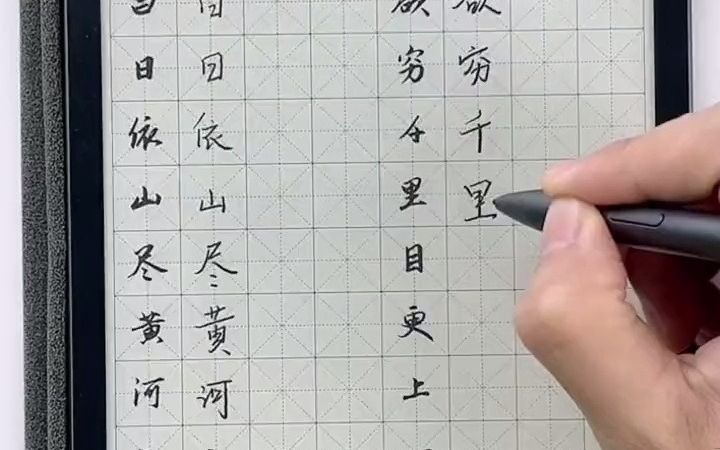 白日依山尽黄河
白日依山尽黄河
欲穷千里目更上
欲穷千里